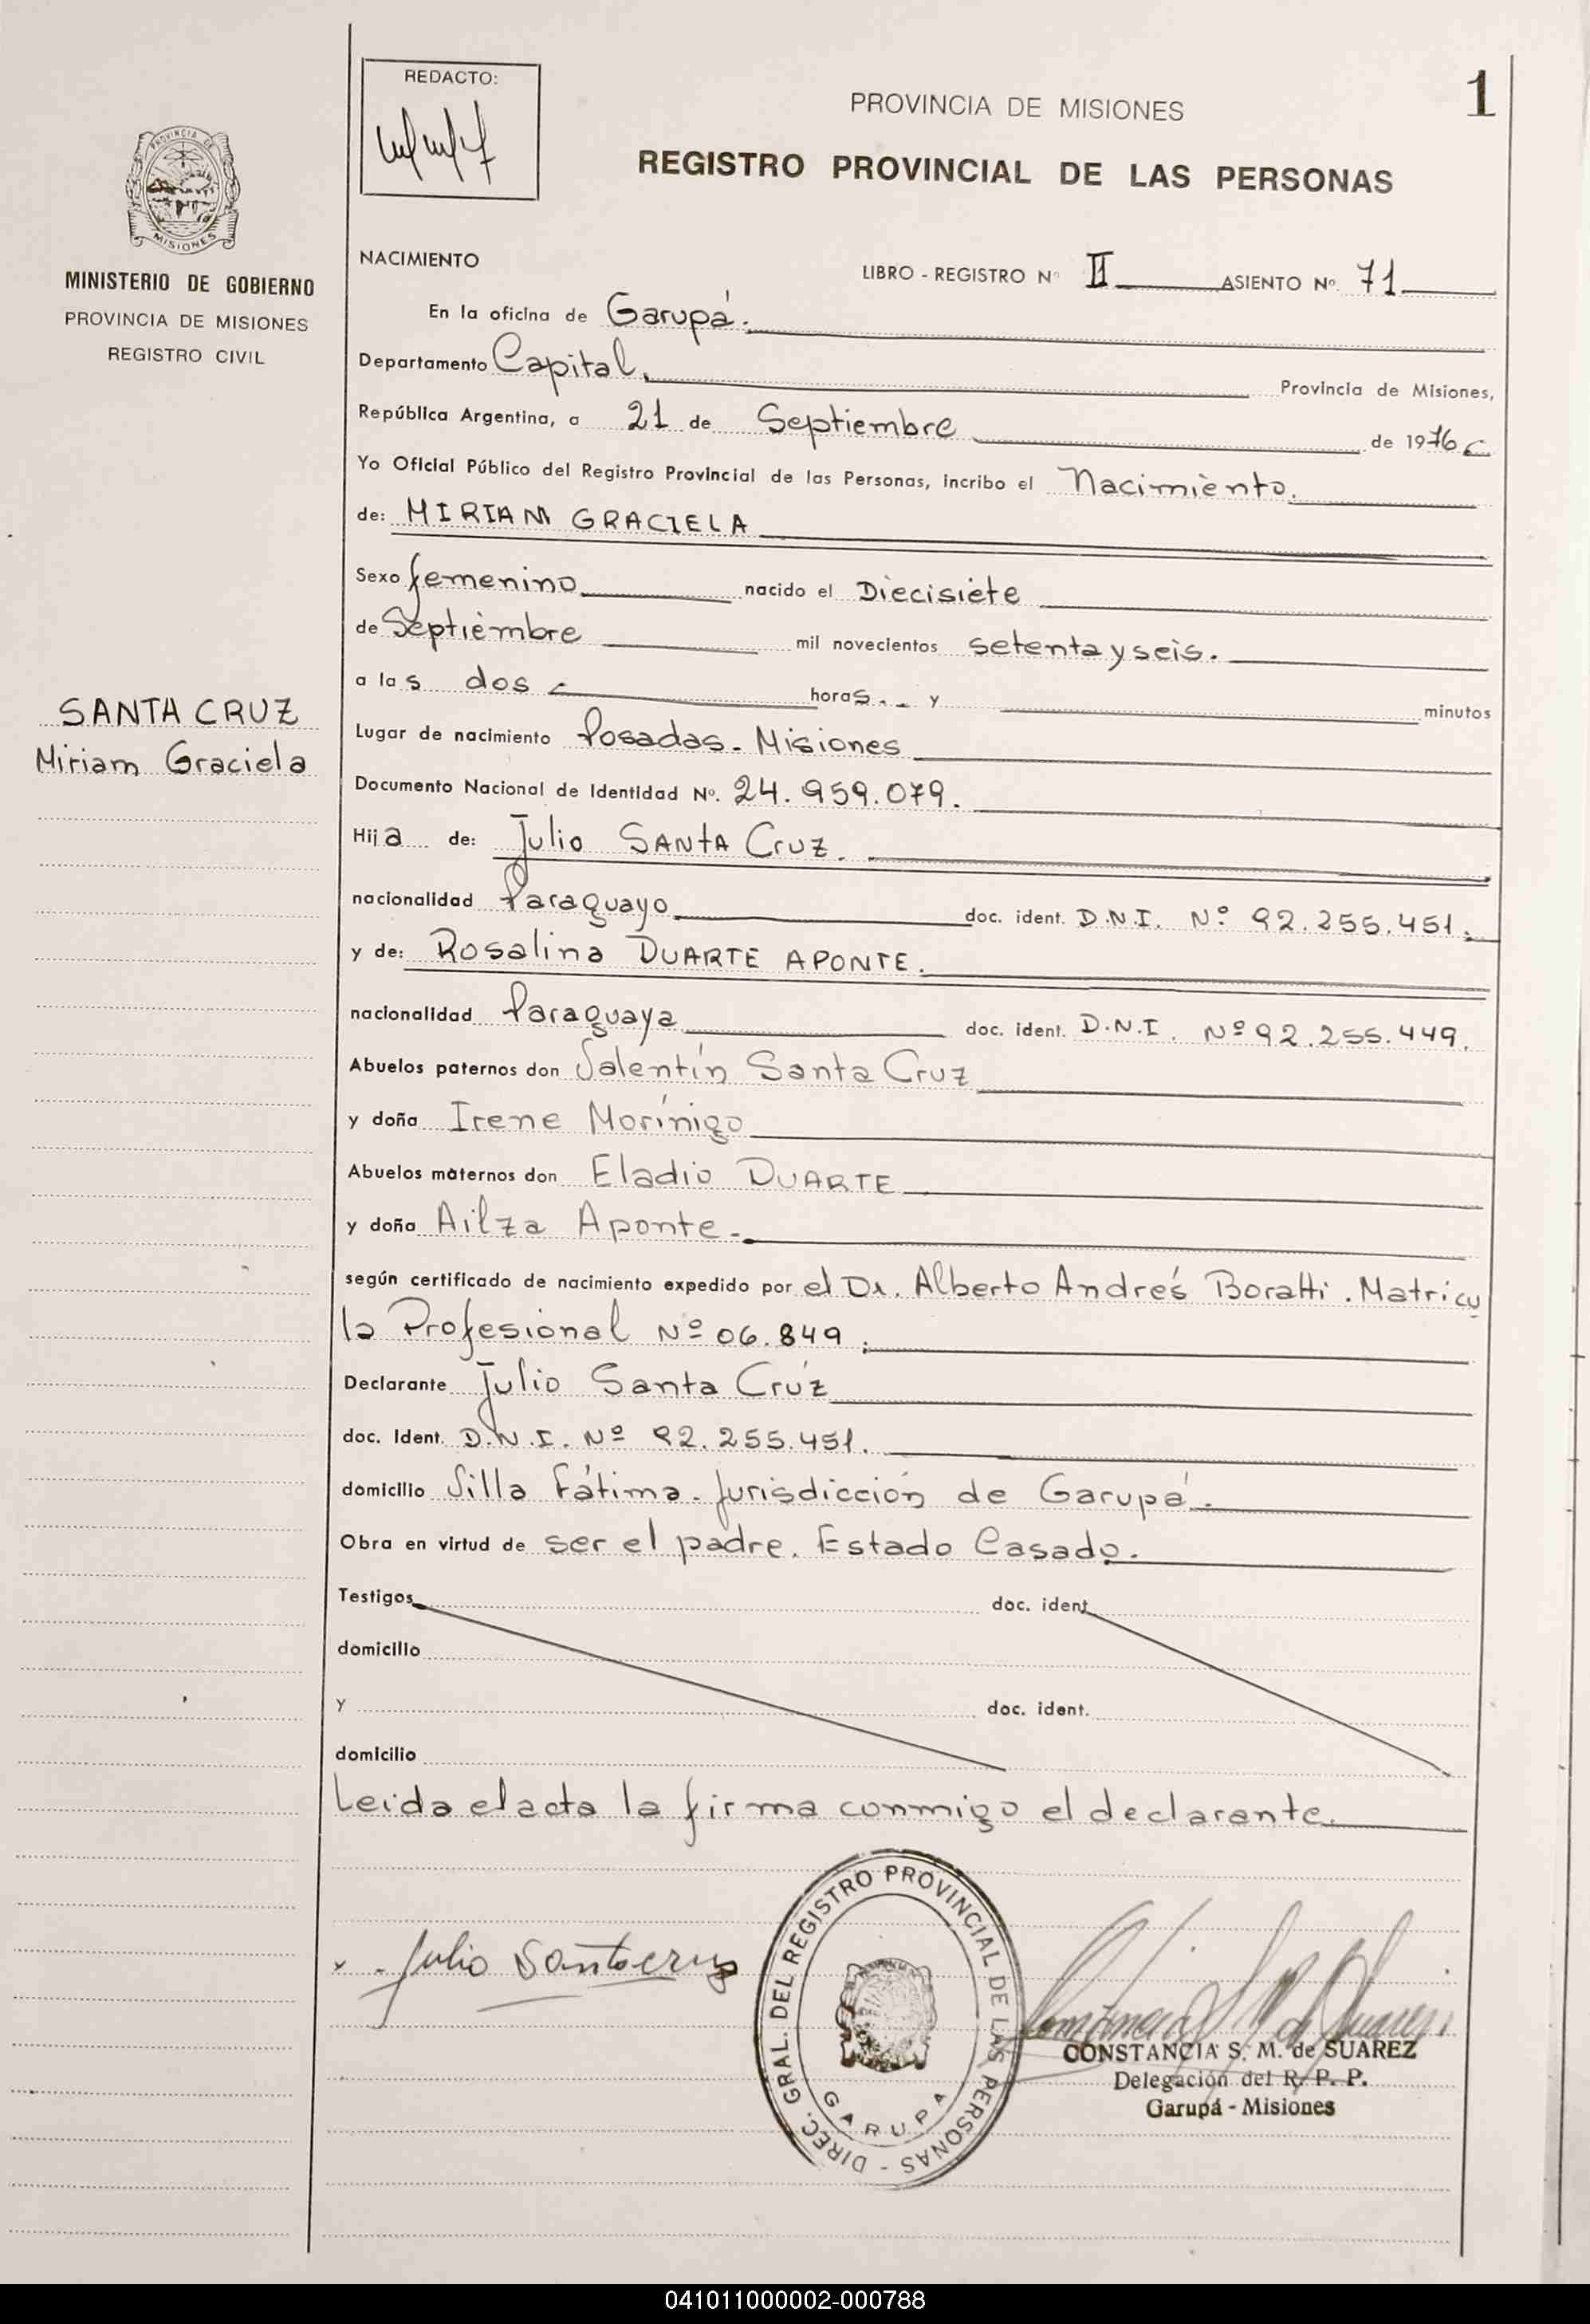 REDACTO:
PROVINCIA DE MISIONES
1
REGISTRO PROVINCIAL DE LAS PERSONAS
PROVINCIA DE MISIONES
MINISTERIO DE GOBIERNO
PROVINCIA DE MISIONES
REGISTRO CIVIL
NACIMIENTO
LIBRO - REGISTRO Nº II ASIENTO Nº 71
En la oficina de Garupá.
Departamento Capital, Provincia de Misiones,
República Argentina, a 21 de Septiembre de 1976
Yo Oficial Público del Registro Provincial de las Personas, incribo el Nacimiento.
de: MIRIAM GRACIELA
Sexo femenino nacido el Diecisiete
de Septiembre mil novecientos setenta y seis.
a las dos horas y minutos
SANTA CRUZ
Miriam Graciela
Lugar de nacimiento Posadas - Misiones
Documento Nacional de Identidad Nº. 24.959.079.
Hija de: Julio SANTA CRUZ.
nacionalidad Paraguayo doc. ident. D.N.I. Nº 92.255.451.
y de: Rosalina DUARTE APONTE.
nacionalidad Paraguaya doc. ident. D.N.I. Nº 92.255.449.
Abuelos paternos don Valentín Santa Cruz
y doña Irene Morínigo
Abuelos maternos don Eladio DUARTE
y doña Ailza Aponte.
según certificado de nacimiento expedido por el Dr. Alberto Andrés Boratti. Matricu
la Profesional Nº 06.849.
Declarante Julio Santa Cruz
doc. Ident. D.N.I. Nº 92.255.451.
domicilio Villa Fátima. Jurisdicción de Garupá.
Obra en virtud de ser el padre. Estado Casado.
Testigos doc. ident
domicilio
y doc. ident.
domicilio
Leida el acta la firma conmigo el declarante.
Julio Santacruz
DIREC. GRAL. DEL REGISTRO PROVINCIAL DE LAS PERSONAS -
GARUPA
CONSTANCIA S. M. de SUAREZ
Delegación del R. P. P.
Garupá - Misiones
041011000002-000788